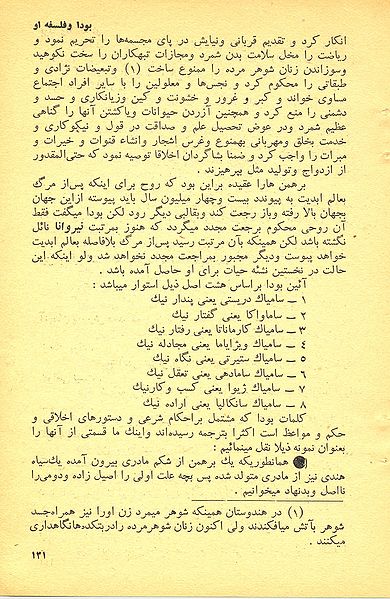 بودا وفلسفه او
انکار کرد و تقدیم قربانی ونیایش در پای مجسمه‌ها را تحریم نمود و
ریاضت را مخل سلامت بدن شمرد ومجازات تبهکاران را سخت نکوهید
وسوزاندن زنان شوهر مرده را ممنوع ساخت (۱) وتبعیضات نژادی و
طبقاتی را محکوم کرد و نجس‌ها و معلولین را با سایر افراد اجتماع
مساوی خواند و کبر و غرور و خشونت و کین وزیانکاری و حسد و
دشمنی را منع کرد و همچنین آزردن حیوانات ویاکشتن آنها را گناهی
عظیم شمرد ودر عوض تحصیل علم و صداقت در قول و نیکوکاری و
خدمت بخلق ومهربانی بهمنوع وغرس اشجار وانشاء قنوات و خیرات و
مبرات را واجب کرد و ضمنا بشاگردان اخلاقا توصیه نمود که حتی‌المقدور
از ازدواج وتولید مثل بپرهیزند .
برهمن هارا عقیده براین بود که روح برای اینکه پس‌از مرگ
بعالم ابدیت به پیوندد بیست وچهار میلیون سال باید پیوسته ازاین جهان
بجهان بالا رفته وباز رجعت کند وبقالبی دیگر رود لکن بودا میگفت فقط
آن روحی محکوم برجعت مجدد میگردد که هنوز بمرتبت نیروانا نائل
نگشته باشد لکن همینکه بآن مرتبت رسید پس‌از مرگ بلافاصله بعالم ابدیت
خواهد پیوست ودیگر مجبور بمراجعت مجدد نخواهد شد ولو اینکه این
حالت در نخستین نشئه حیات برای او حاصل آمده باشد .
آئین بودا براساس هشت اصل ذیل استوار میباشد :
۱ ــ سامیاك دریستی یعنی پندار نیك
۲ ــ ساماواکا یعنی گفتار نیك
۳ ــ سامیاك کارماناتا یعنی رفتار نیك
٤ ــ سامیاك ویژایاما یعنی مجادله نیك
٥ ــ سامیاك ستیرتی یعنی نگاه نیك
٦ ــ سامیاك سامادهی یعنی تعقل نیك
۷ ــ سامیاك ژیوا یعنی کسب وکارنیك
۸ ــ سامیاك سانکالیا یعنی اراده نیك
کلمات بودا که مشتمل براحکام شرعی و دستورهای اخلاقی و
حکم و مواعظ است اکثرا بترجمه رسیده‌اند واینك ما قسمتی از آنها را
بعنوان نمونه ذیلا نقل مینمائیم :
همانطوریکه یك برهمن از شکم مادری بیرون آمده یك‌سیاه
هندی نیز از مادری متولد شده پس بچه علت اولی را اصیل زاده ودومی‌را
نااصل وبدنهاد میخوانیم .
(۱) در هندوستان همینکه شوهر میمرد زن اورا نیز همراه‌جسد
شوهر بآتش میافکندند ولی اکنون زنان شوهرمرده رادربتکده‌هانگاهداری
میکنند .
۱۳۱